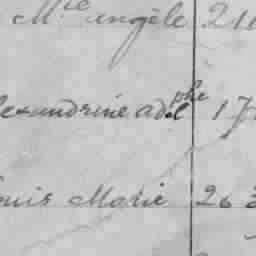 Mie angèle 21
lexandrine ad.phe 17
ouis Marie 26